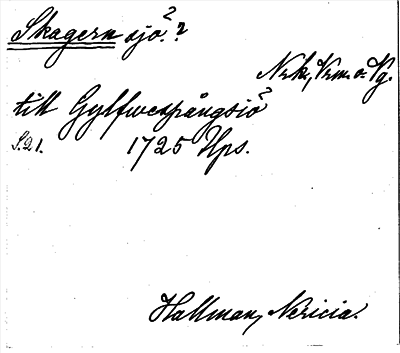 Skagern sjö?
Nrk, Vrm o. Vg.
till Gylfwespångsiö
S. 21. 1725 Hps.
Hallman, Nericia.